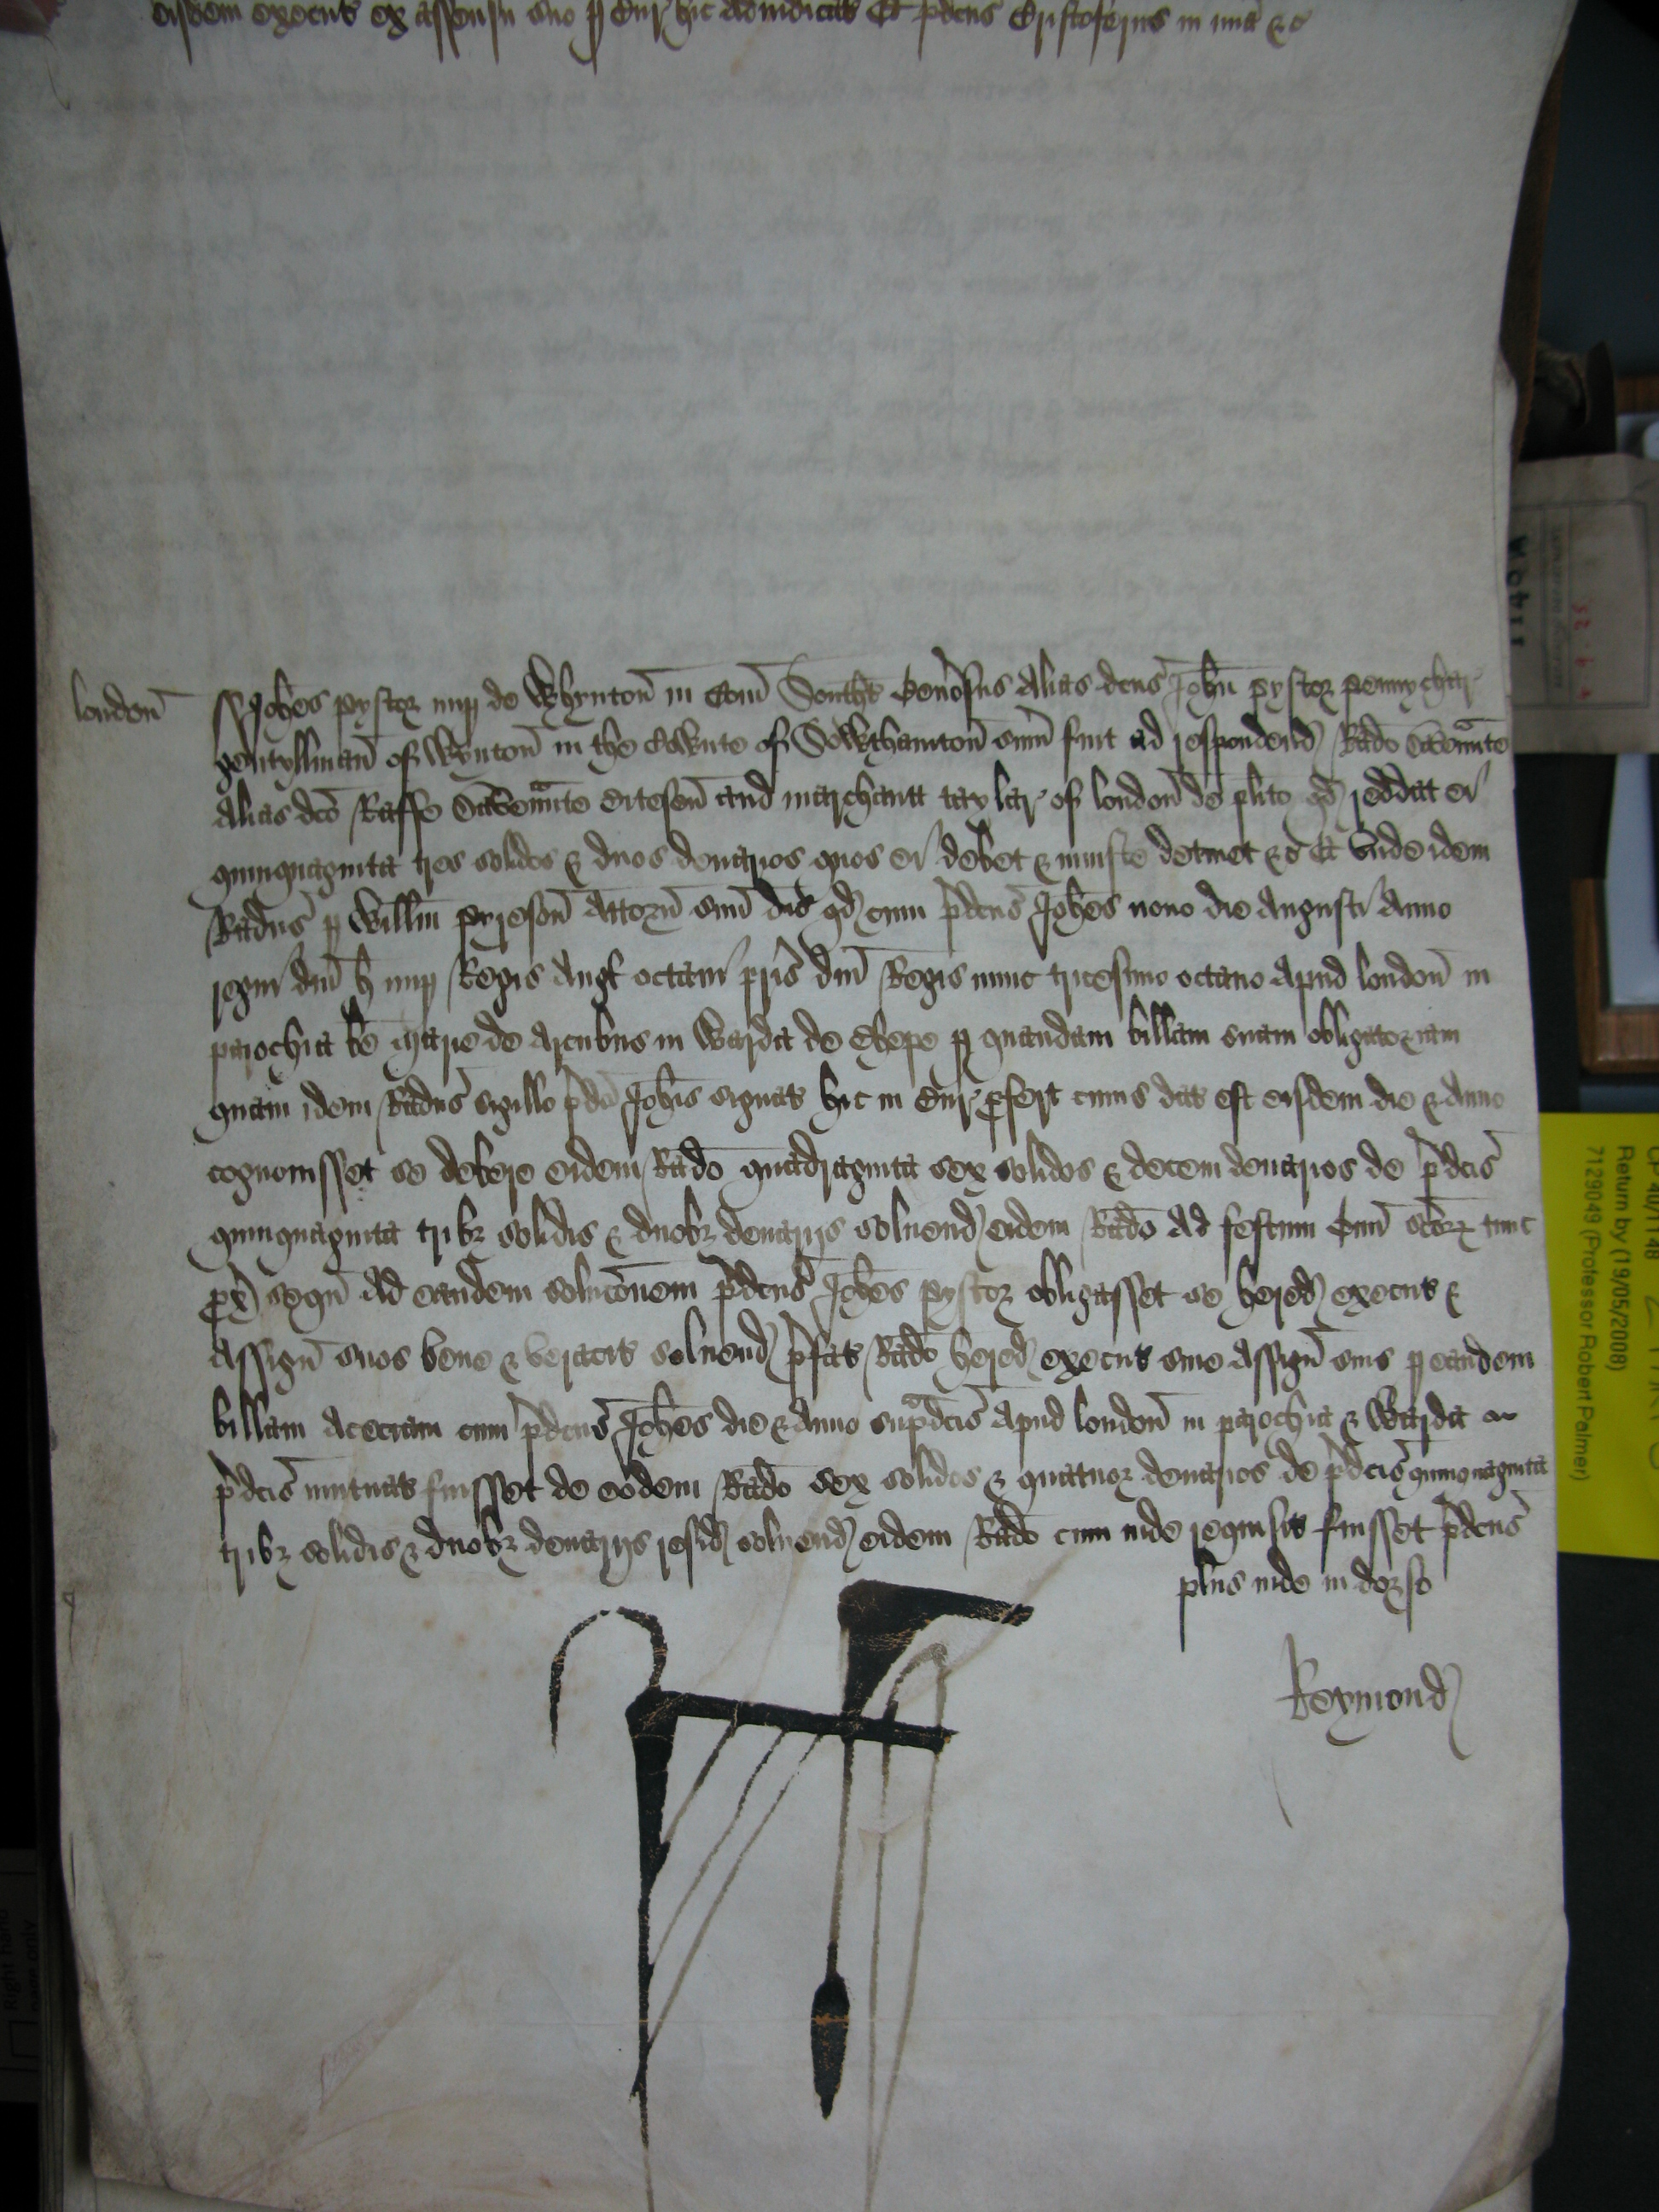 eisdem execut ex assensu suo p Cur hic adiudicat Et pdcus Cristoferus in mia &c
london Johes pystor nup de Whynton in Com Sutht Generosus Alias dcus John pystor
gentyllman of Wynton in the Cownte of Sowthamton sum fuit ad respondend Rado
Alias dco Raffe Citesen and marchant taylar of london de plito qd reddat ei
quinquaginta tres solidos & duos denarios quos ei debet & iniuste detinet &c Et unde idem
Radus p Willm Attorn suu dic qd cum pdcus Johes nono die Augusti Anno
regni dni H nup Regis Angl octaui pris dni Regis nunc tricesimo octauo Apud london in
parochia be marie de Arcubus in Warda de Chepe p quandam billam suam obligatoriam
quam idem Radus sigillo pdci Johis signat hic in Cur pfert cuius dat est eisdem die & Anno
cognouisset se debere eidem Rado quadraginta sex solidos & decem denarios de pdcis
quinquaginta tribz solidis & duobz denarijs soluend eidem Rado Ad festum Omi scorz tunc
px sequ Ad eandem solucionem pdcus Johes pystor obligasset se hered execut &
Assign suos bene & soluend pfat Rado hered execut siue Assign suis p eandem
billam Acetiam cum pdcus Johes die & Anno supdcis Apud london in parochia & Warda
pdcis mutuat fuisset de eodem Rado sex solidos & quatuor denarios de pdcis quinquaginta
tribz solidis & duobz denarijs resid soluend eidem Rado cum inde requisit fuisset pdcus
plus inde in dorso
Reymond
CP 40/1148
Return by (19/05/2008)
7129049 (Professor Robert Palmer)